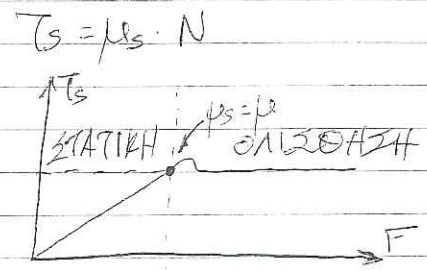 Ts = μs · N
Ts
μs = μ
ΣΤΑΤΙΚΗ ΟΛΙΣΘΗΣΗ
F